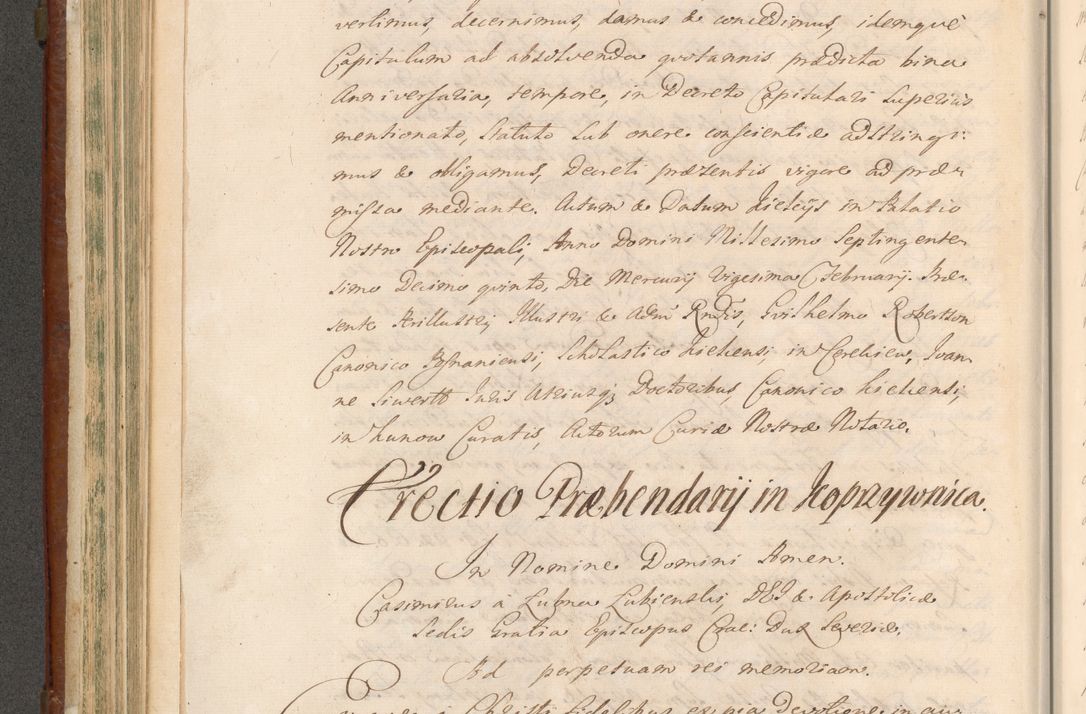 vertimus, decernimus, damus & concedimus, idemque
Capitulum ad absolvenda quotannis prædicta bina
Anniversaria, tempore, in Decreto Capitulari superius
mentionato, statuto sub onere conscientiæ adstringi-
mus & obligamus, Decreti præsentis vigore ad præ-
missa mediante. Actum & Datum Kielcijs in Palatio
Nostro Episcopali, Anno Domini Millesimo Septingente-
simo Decimo quinto, Die Mercurij Vigesima Februarij. Præ-
sente Perillustri, Illustri & Adm Rndis, Guilhelmo Robertson
Canonico Posnaniensi, Scholastico Kielcensi, in Cerekiew, Joan-
ne Siwertt Juris Utriusq; Doctoribus Canonico Kielcensi,
in Kunow Curatis, Actorum Curiæ Nostræ Notario.
Erectio Præbendarij in Koprzywnica.
In Nomine Domini Amen.
Casimirus a Lubna Lubienski, DEI & Apostolicæ
Sedis Gratia Episcopus Crac: Dux Severiæ.
Ad perpetuam rei memoriam.
Christi fidelibus ex pia devotione in